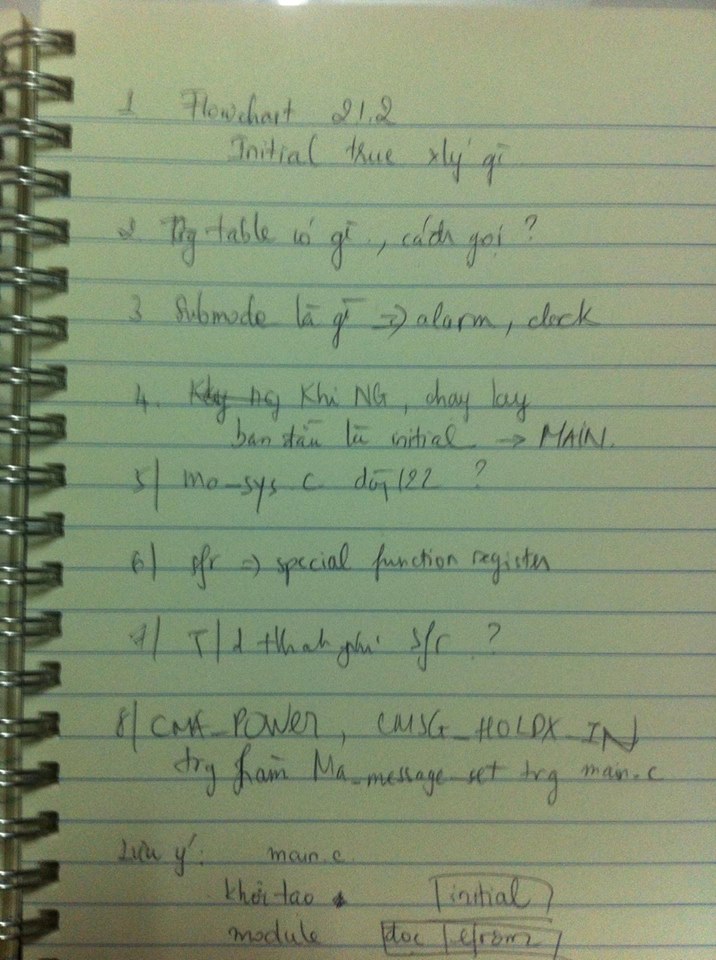 1 Flowchart 21.2
Initial true xlý gì
2 Prg table có gì, cách gọi ?
3 Submode là gì => alarm, clock
4. Khi NG, chạy lay
ban đầu là initial -> MAIN.
5/ mo_sys.c dòg 122 ?
6/ sfr => special function register
7/ T/d sfr ?
8/ CMA_POWER, CMSG_HOLDX_IN
trg hàm Ma_message_set trg main.c
Lưu ý: main.c
khởi tạo initial
module đọc